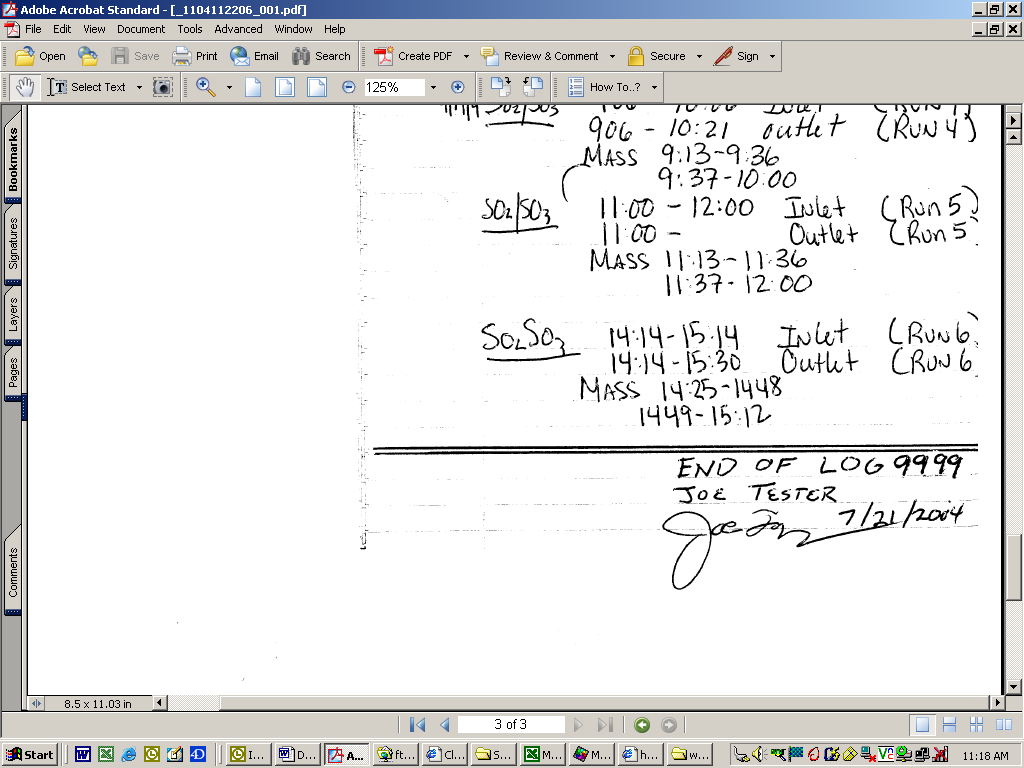 Adobe Acrobat Standard - [_1104112206_001.pdf]
File Edit View Document Tools Advanced Window Help
Open Save Print Email Search Create PDF Review & Comment Secure Sign
Select Text 125% How To..?
Bookmarks
Signatures
Layers
Pages
Comments
SO2/SO3 906 - 10:06 Inlet (Run 4)
906 - 10:21 outlet (RUN 4)
MASS 9:13-9:36
9:37-10:00
SO2/SO3 11:00 - 12:00 Inlet (Run 5)
11:00 - Outlet (Run 5
MASS 11:13-11:36
11:37-12:00
SO2SO3 14:14-15:14 Inlet (Run 6)
14:14-15:30 Outlet (RUN 6
MASS 14:25-1448
1449-15:12
END OF LOG 9999
JOE TESTER
7/21/2004
8.5 x 11.03 in
3 of 3
Start I... D... A... ft... Cl... S... M... M... h... w... 11:18 AM